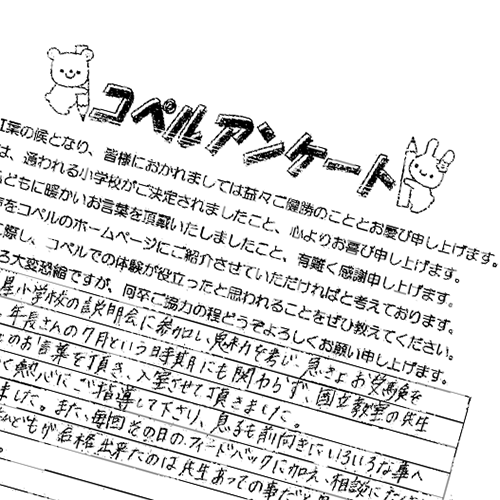 コペルアンケート
葉の候となり、皆様におかれましては益々ご健勝のこととお喜び申し上げます。
は、通われる小学校がご決定されましたこと、心よりお喜び申し上げます。
どもに暖かいお言葉を頂戴いたしましたこと、有難く感謝申し上げます。
をコペルのホームページにご紹介させていただければと考えております。
際し、コペルでの体験が役立ったと思われることをぜひ教えてください。
ろ大変恐縮ですが、何卒ご協力の程どうぞよろしくお願い申し上げます。
小学校の説明会に参加し、魅力を感じ、急きょお受験を
年長さんの7月という時期にも関わらず、国立教室の先生
のお言葉を頂き、入室させて頂きました。
く熱心にご指導して下さり、息子も前向きにいろいろな事へ
ました。また、毎回その日のフィードバックに加え、相談に
どもが合格出来たのは先生あっての事だと